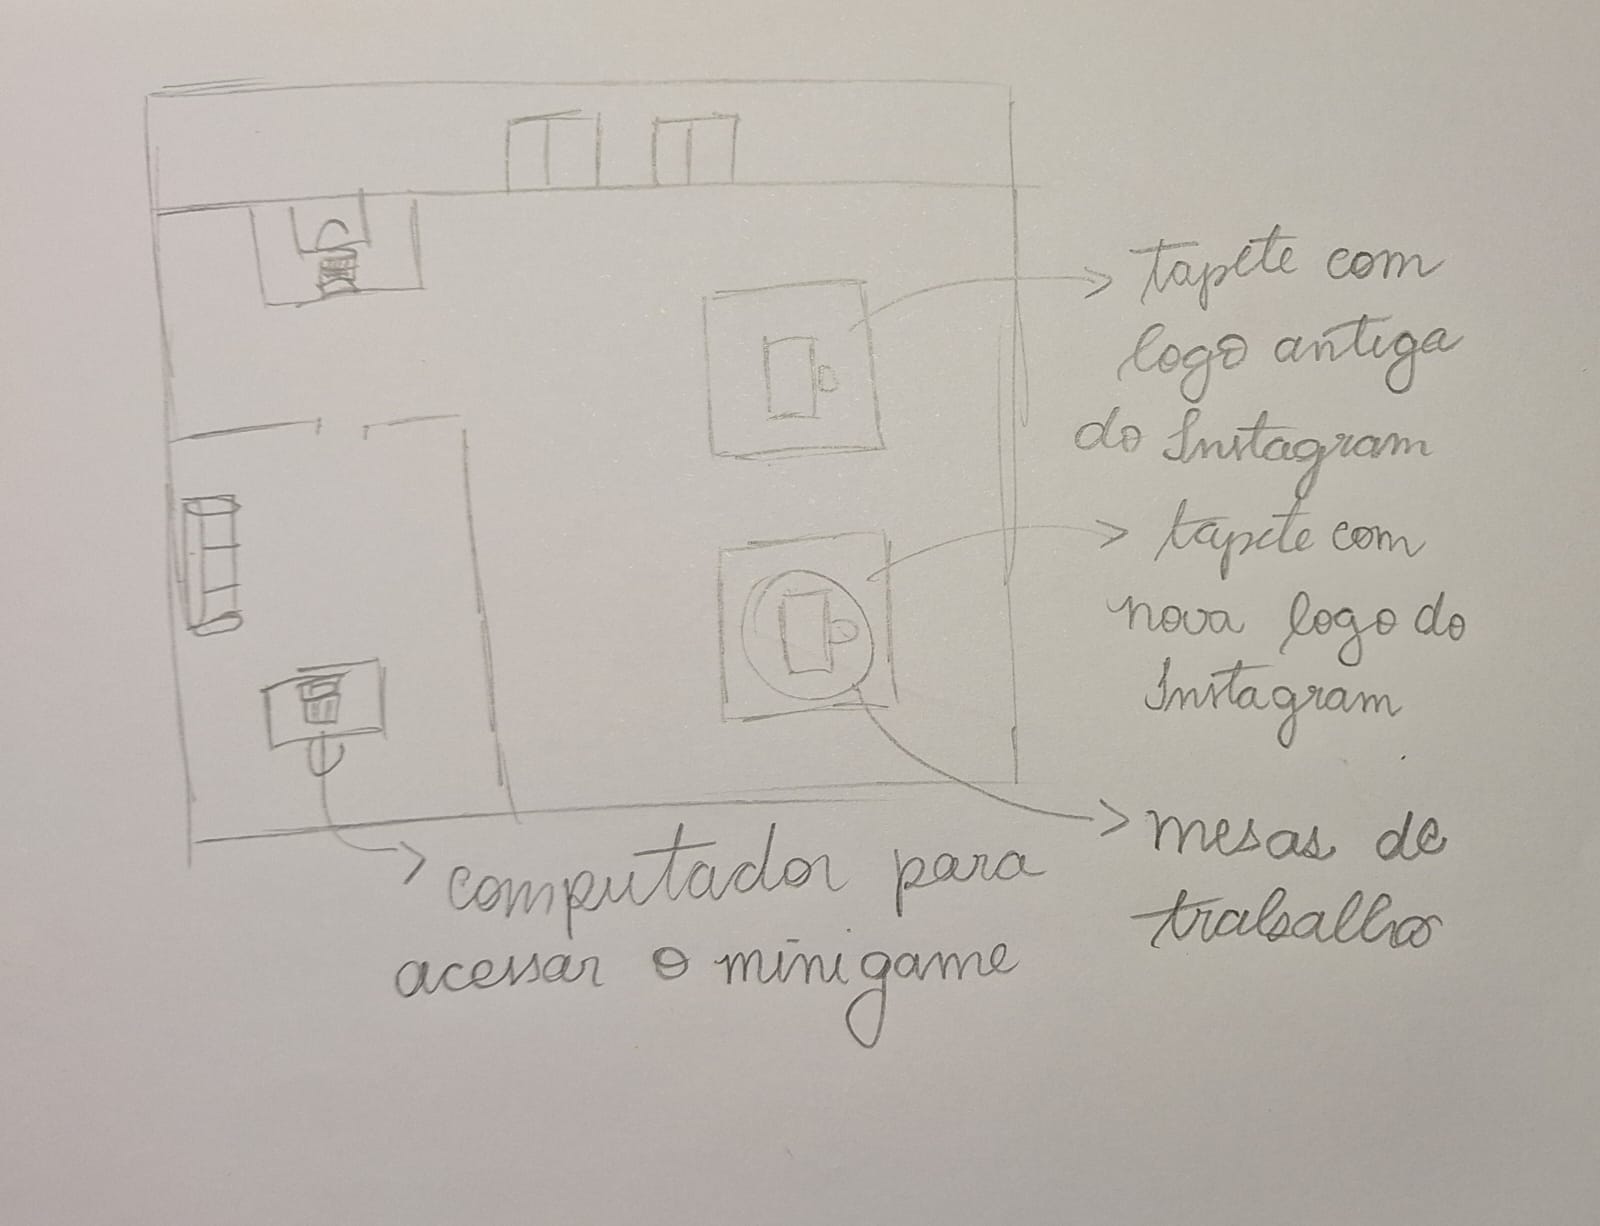 tapete com
logo antiga
do Instagram
tapete com
nova logo do
Instagram
mesas de
trabalho
computador para
acessar o minigame